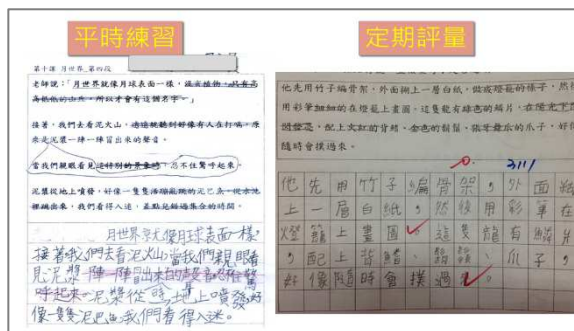 平時練習
定期評量
第十課 月世界_第四段
老師說:「月世界就像月球表面一樣,
高低低的山丘,所以才會有這個名字。」
接著,我們去看泥火山,遠遠就聽到好像有人在打嗝,原
來是泥漿一陣一陣冒出來的聲音。
當我們親眼看見這特別的景象時,忍不住驚呼起來。
泥漿從地上噴發,好像一隻隻活蹦亂跳的泥巴魚一從水池
裡跳出來,我們看得入迷,差點忘錯過集合的時間。
月世界就像月球表面一樣,
接著我們去看泥火山,當我們親眼看
見泥漿一陣一陣冒出來的聲音忍不住驚
呼起來。泥漿從地上噴發,好
像一隻隻泥巴魚我們看得入迷。
他先用竹子編骨架,外面糊上一層白紙,做成燈籠的樣子,然後
用彩筆細細的在燈籠上畫圖。這隻龍有綠色的鱗片,在陽光下
配上火紅的背鰭、金色的鬍鬚、張牙舞爪的爪子,好像
隨時會撲過來。
他先用竹子編骨架,外面糊
上一層白紙,然後用彩筆在
燈籠上畫圖。這隻龍有鱗片
,配上背鰭、鬍鬚、爪子,
好像隨時會撲過來。